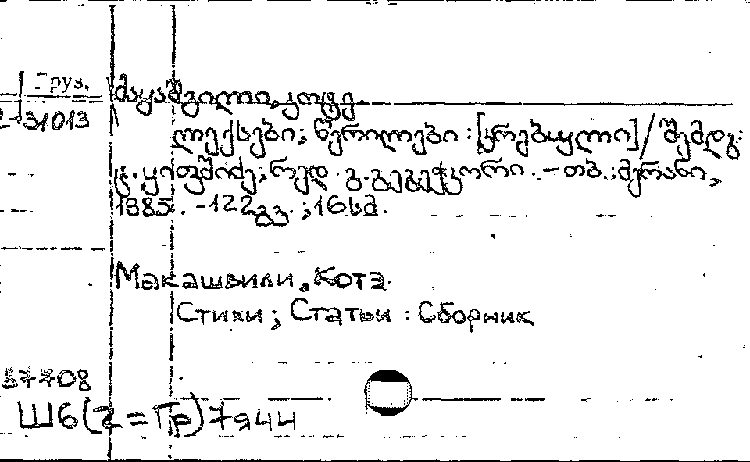 Груз. მაყაშვილი, კოტე
2-31013
ლექსები; წერილები : [კრებული] / შემდგ:
ც. ყიფშიძე; რედ. გ. გეგეჭკორი. - თბ.: მერანი,
1985. - 122გვ. ; 16სმ.
Макашвили, Котэ.
Стихи ; Статьи : Сборник
57708
Ш6(2=Гр)7я44